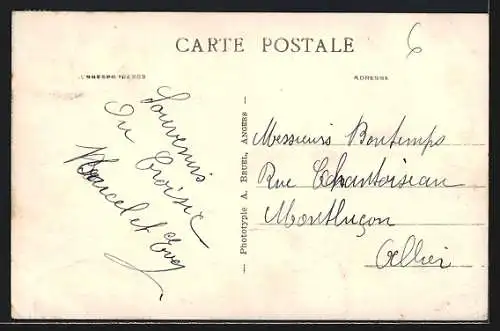 CARTE POSTALE
CORRESPONDANCE
ADRESSE
6
Souvenirs
Du Croisic
Marcel et
Phototypie A. BRUEL, ANGERS
Messieurs Bontemps
Rue Chantoiseau
Montluçon
Allier